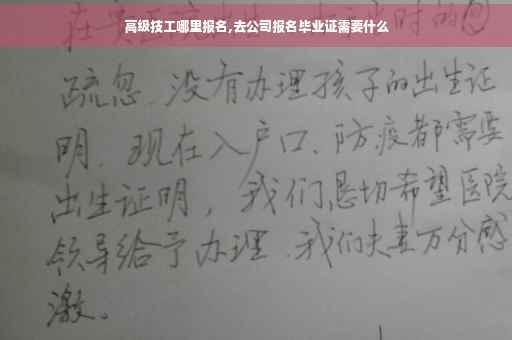 高级技工哪里报名,去公司报名毕业证需要什么
疏忽、没有办理孩子的出生证
明、现在入户口、防疫都需要
出生证明，我们恳切希望医院
领导给予办理、我们夫妻万分感
激。